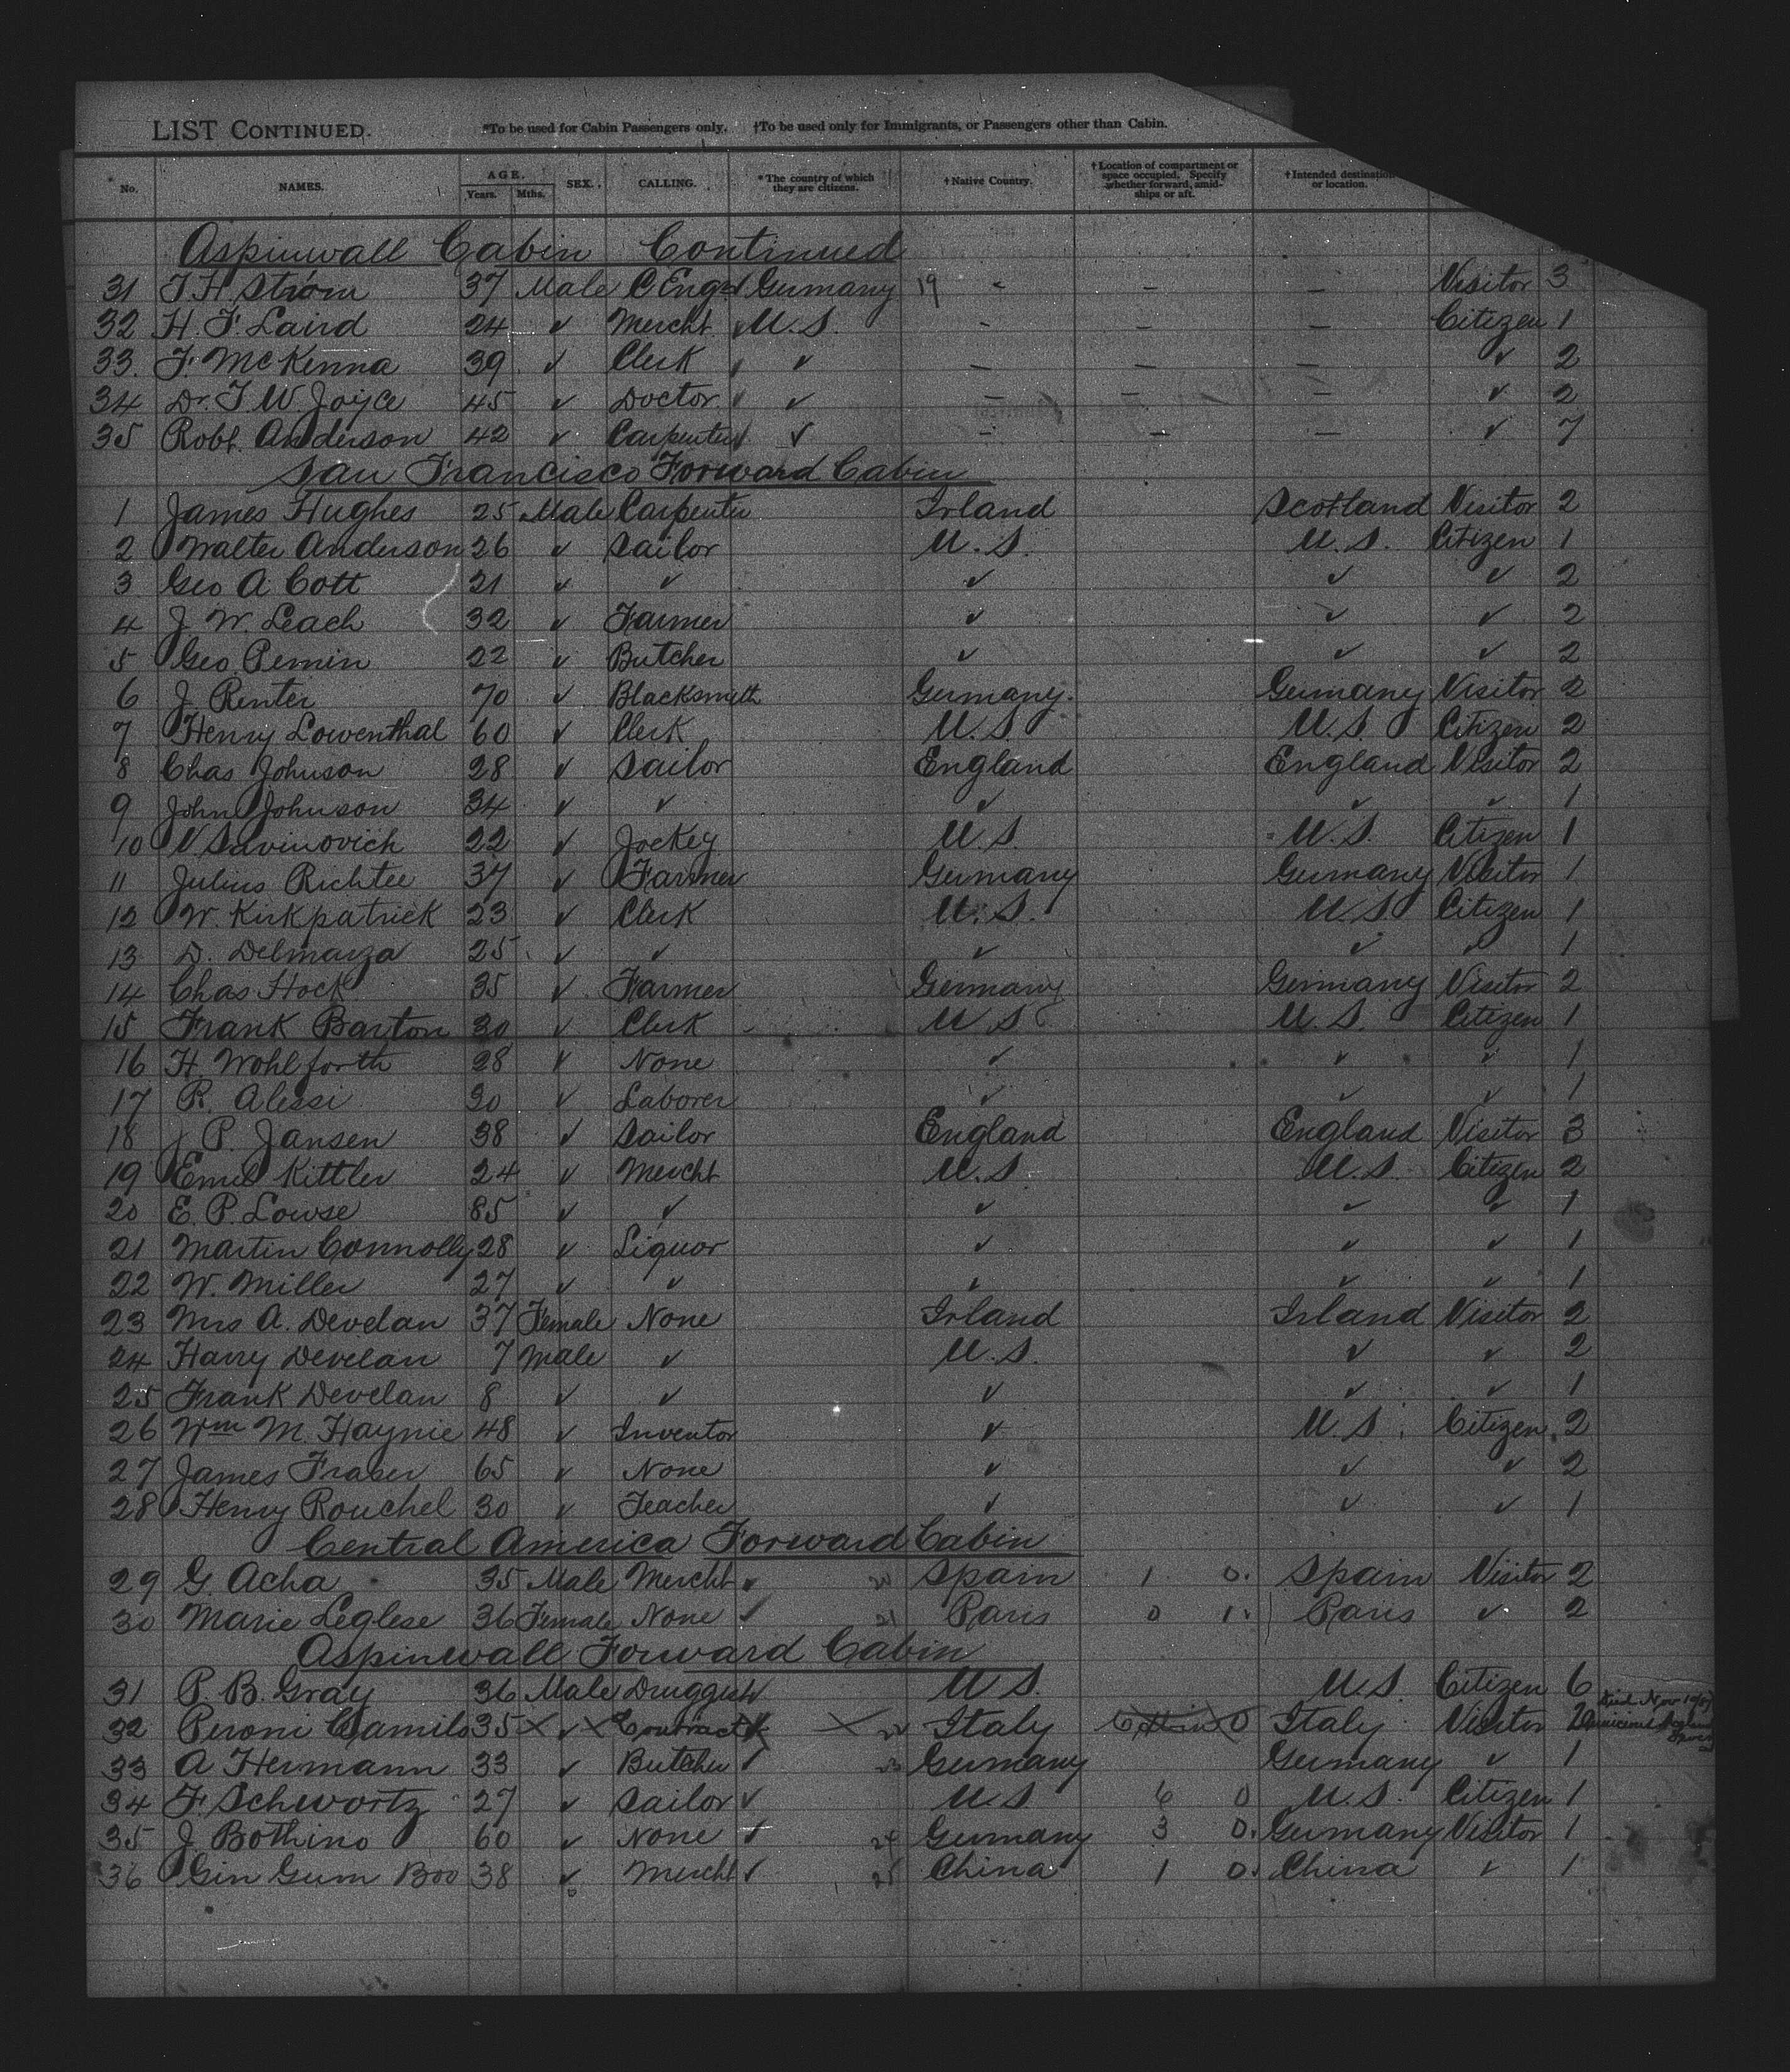 LIST CONTINUED. *To be used for Cabin Passengers only. †To be used only for Immigrants, or Passengers other than Cabin.
No. NAMES. AGE. Years. Mths. SEX. CALLING. *The country of which they are citizens. †Native Country. †Location of compartment or space occupied. Specify whether forward, amidships or aft. †Intended destination or location.
Aspinwall Cabin Continued
31 J H Strom 37 Male C Engr Germany 19 - - - Visitor 3
32 H. F. Laird 24 ✓ Mercht U.S. - - - Citizen 1
33. F. McKenna 39 ✓ Clerk ✓ - - - ✓ 2
34 Dr. J. W Joyce 45 ✓ Doctor ✓ - - - ✓ 2
35 Robt. Anderson 42 ✓ Carpenter ✓ - - - ✓ 7
San Francisco Forward Cabin
1 James Hughes 25 Male Carpenter Irland Scotland Visitor 2
2 Walter Anderson 26 ✓ Sailor U.S. U.S. Citizen 1
3 Geo A Cott 21 ✓ ✓ ✓ ✓ ✓ 2
4 J. W. Leach 32 ✓ Farmer ✓ ✓ ✓ 2
5 Geo Pemin 22 ✓ Butcher ✓ ✓ ✓ 2
6 J. Renter 70 ✓ Blacksmith Germany. Germany Visitor 2
7 Henry Lowenthal 60 ✓ Clerk U.S. U.S. Citizen 2
8 Chas Johnson 28 ✓ Sailor England England Visitor 2
9 John Johnson 34 ✓ ✓ ✓ ✓ ✓ 1
10 N Savinovich 22 ✓ Jockey U.S. U.S. Citizen 1
11 Julius Richtee 37 ✓ Farmer Germany Germany Visitor 1
12 W. Kirkpatrick 23 ✓ Clerk U.S. U.S. Citizen 1
13 D. Delmarza 25 ✓ ✓ ✓ ✓ ✓ 1
14 Chas Hock 35 ✓ Farmer Germany Germany Visitor 2
15 Frank Barton 30 ✓ Clerk U S U.S. Citizen 1
16 H. Wohlforth 28 ✓ None ✓ ✓ ✓ 1
17 R. Alessi 30 ✓ Laborer ✓ ✓ ✓ 1
18 J P. Jansen 38 ✓ Sailor England England Visitor 3
19 Emil Kittler 24 ✓ Mercht U.S. U.S. Citizen 2
20 E. P. Lowse 85 ✓ ✓ ✓ ✓ ✓ 1
21 Martin Connolly 28 ✓ Liquor ✓ ✓ ✓ 1
22 W. Miller 27 ✓ ✓ ✓ ✓ ✓ 1
23 Mrs A. Develan 37 Female None Irland Irland Visitor 2
24 Harry Develan 7 Male ✓ U.S. ✓ ✓ 2
25 Frank Develan 8 ✓ ✓ ✓ ✓ ✓ 1
26 Wm M. Haynie 48 ✓ Inventor ✓ U.S. Citizen 2
27 James Fraser 65 ✓ None ✓ ✓ ✓ 2
28 Henry Rouchel 30 ✓ Teacher ✓ ✓ ✓ 1
Central America Forward Cabin
29 G. Acha 35 Male Mercht ✓ 20 Spain 1 0. Spain Visitor 2
30 Marie Leglese 36 Female None ✓ 21 Paris 0 1. Paris ✓ 2
Aspinwall Forward Cabin
31 P. B. Gray 36 Male Druggist ✓ U.S. U.S. Citizen 6
32 Peroni Camilo 35 ✓ Contract 22 Italy 0 Italy Visitor 2 Died Nov
33 A Hermann 33 ✓ Butcher ✓ 23 Germany Germany ✓ 1
34 F. Schwortz 27 ✓ Sailor ✓ U.S. 6 0 U.S. Citizen 1
35 J. Bothino 60 ✓ None ✓ 24 Germany 3 0. Germany Visitor 1
36 Gin Gum Boo 38 ✓ Mercht ✓ 25 China 1 0. China ✓ 1